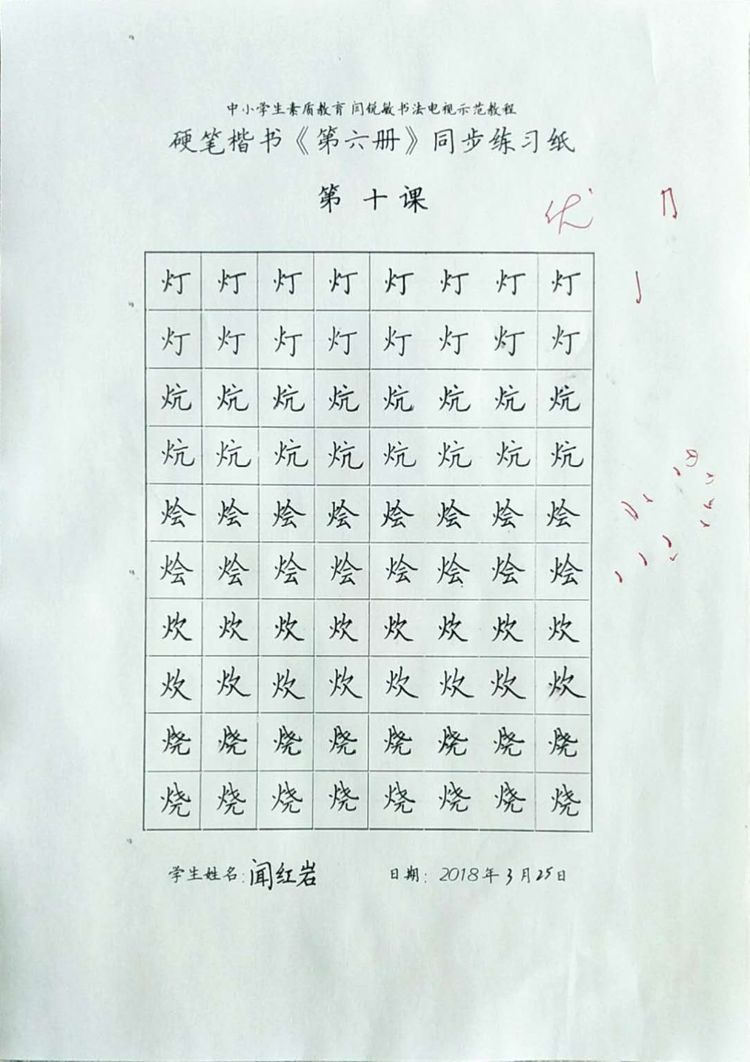 中小学生素质教育 闫锐敏书法电视示范教程
硬笔楷书《第六册》同步练习纸
第十课
优
灯灯灯灯灯灯灯灯
灯灯灯灯灯灯灯灯
炕炕炕炕炕炕炕炕
炕炕炕炕炕炕炕炕
烩烩烩烩烩烩烩烩
烩烩烩烩烩烩烩烩
炊炊炊炊炊炊炊炊
炊炊炊炊炊炊炊炊
烧烧烧烧烧烧烧烧
烧烧烧烧烧烧烧烧
学生姓名:闻红岩 日期:2018年3月25日